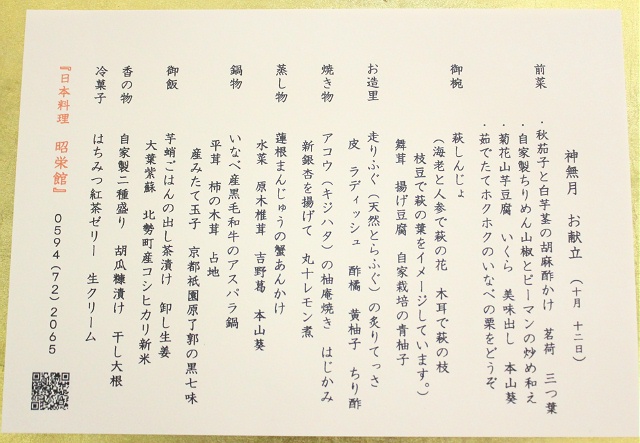 神無月 お献立 (十月 十二日)
前菜 ・秋茄子と白芋茎の胡麻酢かけ 茗荷 三つ葉
・自家製ちりめん山椒とピーマンの炒め和え
・菊花山芋豆腐 いくら 美味出し 本山葵
・茹でたてホクホクのいなべの栗をどうぞ
御椀 萩しんじょ
(海老と人参で萩の花 木耳で萩の枝
枝豆で萩の葉をイメージしています。)
舞茸 揚げ豆腐 自家栽培の青柚子
お造里 走りふぐ(天然とらふぐ)の炙りてっさ
皮 ラディッシュ 酢橘 黄柚子 ちり酢
焼き物 アコウ(キジハタ)の柚庵焼き はじかみ
新銀杏を揚げて 丸十レモン煮
蒸し物 蓮根まんじゅうの蟹あんかけ
水菜 原木椎茸 吉野葛 本山葵
鍋物 いなべ産黒毛和牛のアスパラ鍋
平茸 柿の木茸 占地
産みたて玉子 京都祇園原了郭の黒七味
御飯 芋蛸ごはんの出し茶漬け 卸し生姜
大葉紫蘇 北勢町産コシヒカリ新米
香の物 自家製二種盛り 胡瓜糠漬け 干し大根
冷菓子 はちみつ紅茶ゼリー 生クリーム
『日本料理 昭栄館』 0594(72)2065